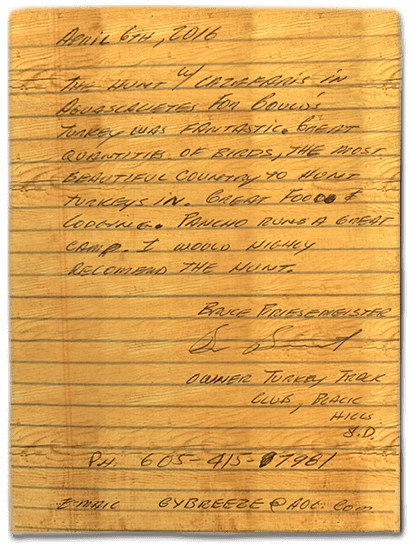 April 6th, 2016
The hunt w/ Cazeferis in
Aguascalietes for Gould's
turkey was fantastic. Great
quantities of birds, the most
beautiful country to hunt
turkeys in. Great food &
lodging. Pancho runs a great
camp. I would highly
recomend the hunt.
Bruce Priesemeister
Owner Turkey Track
Club, Black
Hills
S.D.
PH. 605-415-7981
Email GYBREEZE@AOL.com